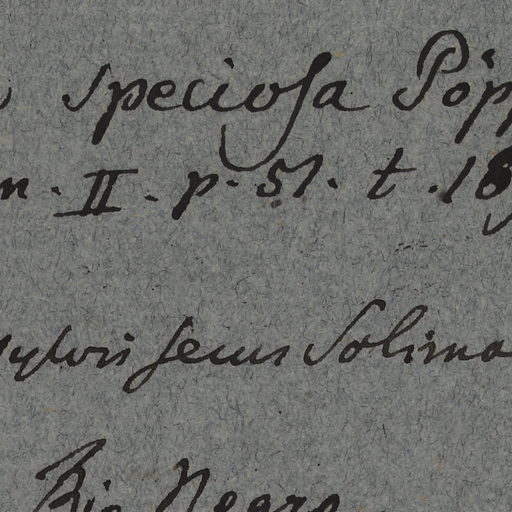 speciosa Pöpp
m. II. p. 51. t. 18
sylvis secus Solimo
Rio Negro.